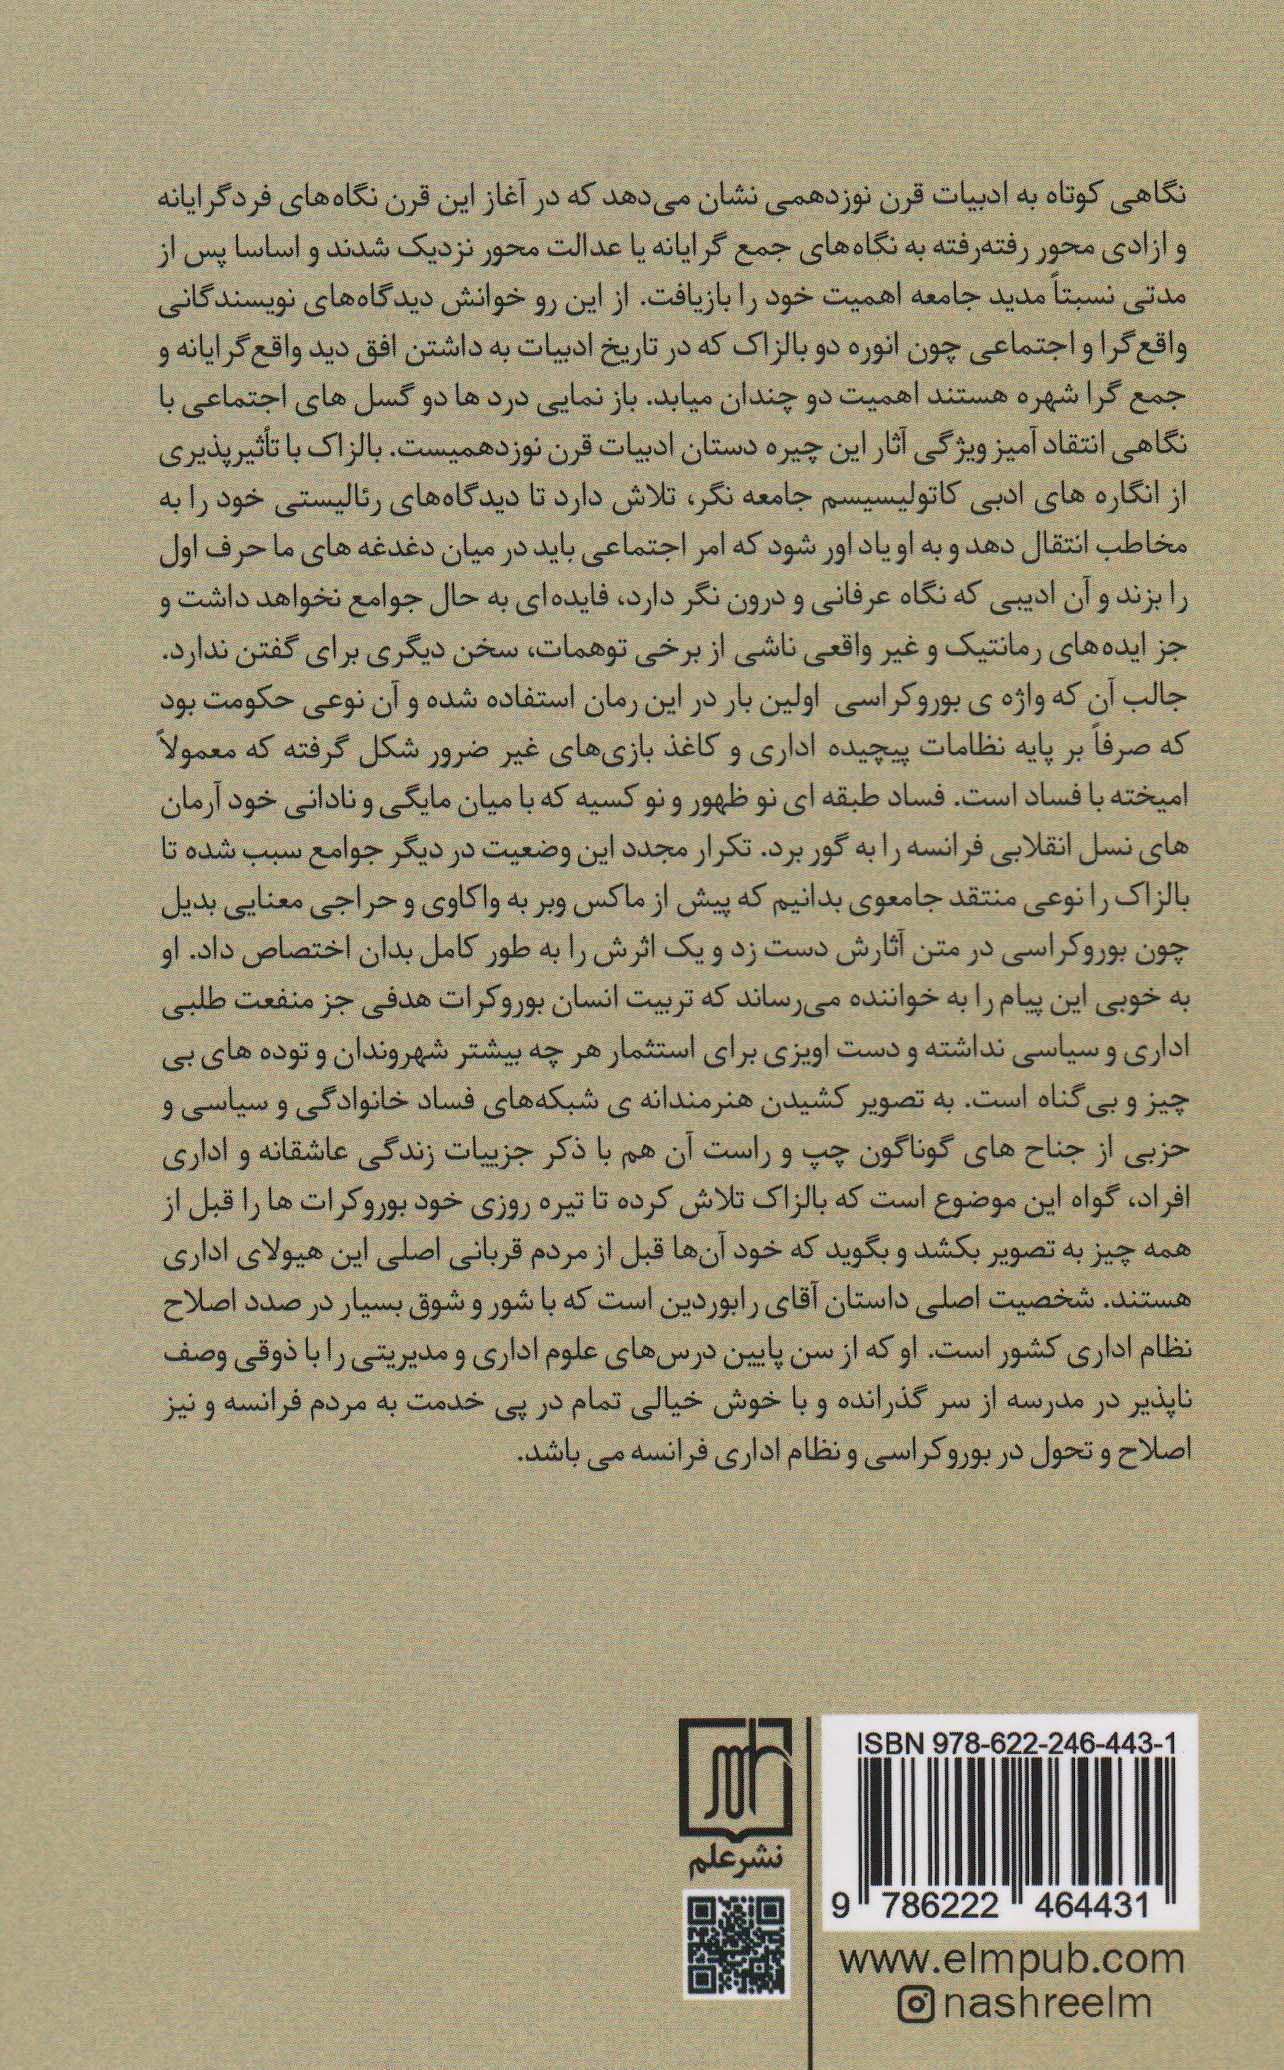 نگاهی کوتاه به ادبیات قرن نوزدهمی نشان می‌دهد که در آغاز این قرن نگاه‌های فردگرایانه
و ازادی محور رفته‌رفته به نگاه‌های جمع گرایانه یا عدالت محور نزدیک شدند و اساسا پس از
مدتی نسبتاً مدید جامعه اهمیت خود را بازیافت. از این رو خوانش دیدگاه‌های نویسندگانی
واقع‌گرا و اجتماعی چون انوره دو بالزاک که در تاریخ ادبیات به داشتن افق دید واقع‌گرایانه و
جمع گرا شهره هستند اهمیت دو چندان میابد. باز نمایی درد ها دو گسل های اجتماعی با
نگاهی انتقاد آمیز ویژگی آثار این چیره دستان ادبیات قرن نوزدهمیست. بالزاک با تأثیرپذیری
از انگاره های ادبی کاتولیسیسم جامعه نگر، تلاش دارد تا دیدگاه‌های رئالیستی خود را به
مخاطب انتقال دهد و به او یاد اور شود که امر اجتماعی باید در میان دغدغه های ما حرف اول
را بزند و آن ادیبی که نگاه عرفانی و درون نگر دارد، فایده‌ای به حال جوامع نخواهد داشت و
جز ایده‌های رمانتیک و غیر واقعی ناشی از برخی توهمات، سخن دیگری برای گفتن ندارد.
جالب آن که واژه ی بوروکراسی اولین بار در این رمان استفاده شده و آن نوعی حکومت بود
که صرفاً بر پایه نظامات پیچیده اداری و کاغذ بازی‌های غیر ضرور شکل گرفته که معمولاً
امیخته با فساد است. فساد طبقه ای نو ظهور و نو کسیه که با میان مایگی و نادانی خود آرمان
های نسل انقلابی فرانسه را به گور برد. تکرار مجدد این وضعیت در دیگر جوامع سبب شده تا
بالزاک را نوعی منتقد جامعوی بدانیم که پیش از ماکس وبر به واکاوی و حراجی معنایی بدیل
چون بوروکراسی در متن آثارش دست زد و یک اثرش را به طور کامل بدان اختصاص داد. او
به خوبی این پیام را به خواننده می‌رساند که تربیت انسان بوروکرات هدفی جز منفعت طلبی
اداری و سیاسی نداشته و دست اویزی برای استثمار هر چه بیشتر شهروندان و توده های بی
چیز و بی‌گناه است. به تصویر کشیدن هنرمندانه ی شبکه‌های فساد خانوادگی و سیاسی و
حزبی از جناح های گوناگون چپ و راست آن هم با ذکر جزییات زندگی عاشقانه و اداری
افراد، گواه این موضوع است که بالزاک تلاش کرده تا تیره روزی خود بوروکرات ها را قبل از
همه چیز به تصویر بکشد و بگوید که خود آن‌ها قبل از مردم قربانی اصلی این هیولای اداری
هستند. شخصیت اصلی داستان آقای رابوردین است که با شور و شوق بسیار در صدد اصلاح
نظام اداری کشور است. او که از سن پایین درس‌های علوم اداری و مدیریتی را با ذوقی وصف
ناپذیر در مدرسه از سر گذرانده و با خوش خیالی تمام در پی خدمت به مردم فرانسه و نیز
اصلاح و تحول در بوروکراسی و نظام اداری فرانسه می باشد.
ISBN 978-622-246-443-1
9 786222 464431
نشر علم
www.elmpub.com
nashreelm